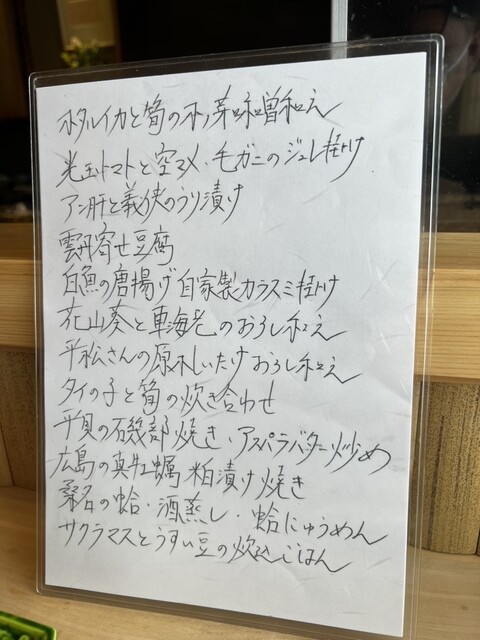 ホタルイカと筍の木ノ芽味噌和え
光玉トマトと空マメ・毛ガニのジュレ掛け
アン肝と義侠のうり漬け
雲丹寄せ豆腐
白魚の唐揚げ 自家製カラスミ掛け
花山葵と車海老のおろし和え
平松さんの原木しいたけおろし和え
タイの子と筍の炊き合わせ
平貝の磯部焼き・アスパラバター炒め
広島の真牡蠣 粕漬け焼き
桑名の蛤・酒蒸し・蛤にゅうめん
サクラマスとうすい豆の炊込ごはん